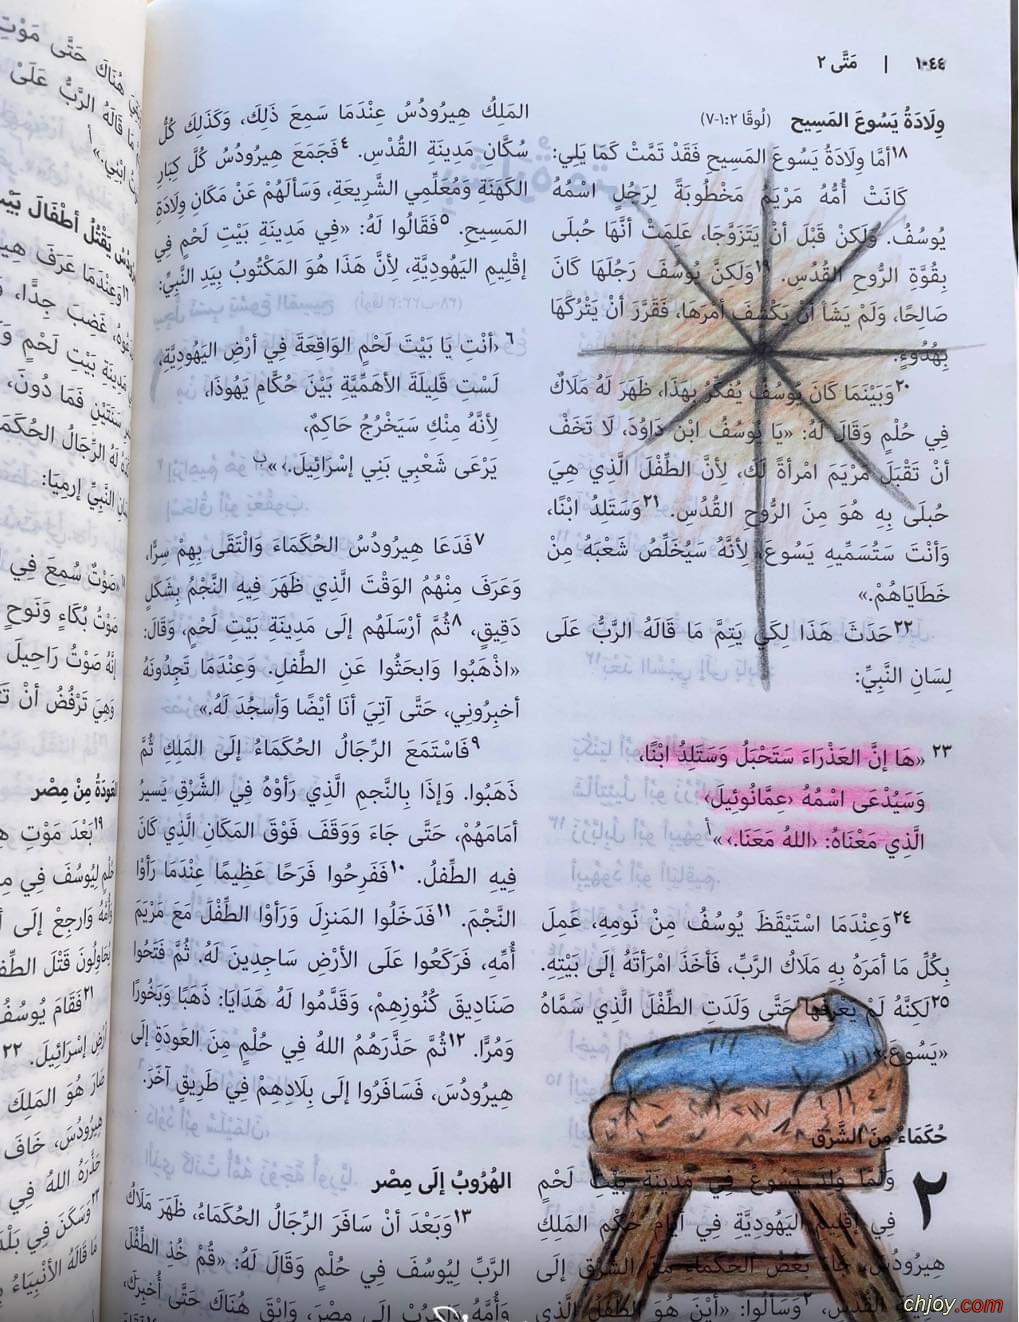 ١٠٤٤ | مَتَّى ٢
وِلَادَةُ يَسُوعَ المَسِيح (لُوقَا ٢:١-٧)
١٨أمَّا وِلَادَةُ يَسُوعَ المَسِيحِ فَقَدْ تَمَّتْ كَمَا يَلِي:
كَانَتْ أُمُّهُ مَرْيَمُ مَخْطُوبَةً لِرَجُلٍ اسْمُهُ
يُوسُفُ. وَلَكِنْ قَبْلَ أنْ يَتَزَوَّجَا، عَلِمَتْ أنَّهَا حُبلَى
بِقُوَّةِ الرُّوحِ القُدُسِ. ١٩وَلَكِنَّ يُوسُفَ رَجُلَهَا كَانَ
صَالِحًا، وَلَمْ يَشَأْ أنْ يَكْشِفَ أمْرَهَا، فَقَرَّرَ أنْ يَتْرُكَهَا
بِهُدُوءٍ.
٢٠وَبَيْنَمَا كَانَ يُوسُفُ يُفَكِّرُ بِهَذَا، ظَهَرَ لَهُ مَلَاكٌ
فِي حُلْمٍ وَقَالَ لَهُ: «يَا يُوسُفُ ابْنَ دَاوُدَ، لَا تَخَفْ
أنْ تَقْبَلَ مَرْيَمَ امْرأةً لَكَ، لِأنَّ الطِّفْلَ الَّذِي هِيَ
حُبلَى بِهِ هُوَ مِنَ الرُّوحِ القُدُسِ. ٢١وَسَتَلِدُ ابْنًا،
وَأنْتَ سَتُسَمِّيهِ يَسُوعَ، لِأنَّهُ سَيُخَلِّصُ شَعْبَهُ مِنْ
خَطَايَاهُمْ.»
٢٢حَدَثَ هَذَا لِكَي يَتِمَّ مَا قَالَهُ الرَّبُّ عَلَى
لِسَانِ النَّبِيِّ:
٢٣ «هَا إنَّ العَذْرَاءَ سَتَحْبَلُ وَسَتَلِدُ ابْنًا،
وَسَيُدْعَى اسْمُهُ ‹عِمَّانُوئِيلَ›
الَّذِي مَعْنَاهُ: ‹اللهُ مَعَنَا.›»أ
٢٤وَعِنْدَمَا اسْتَيْقَظَ يُوسُفُ مِنْ نَومِهِ، عَمِلَ
بِكُلِّ مَا أمَرَهُ بِهِ مَلَاكُ الرَّبِّ، فَأخَذَ امْرَأتَهُ إلَى بَيْتِهِ.
٢٥لَكِنَّهُ لَمْ يَعْرِفْهَا حَتَّى وَلَدَتِ الطِّفْلَ الَّذِي سَمَّاهُ
«يَسُوعَ.»
حُكَمَاءُ مِنَ الشَّرْق
٢ وَلَمَّا وُلِدَ يَسُوعُ فِي مَدِينَةِ بَيْتِ لَحْمٍ
فِي إقْلِيمِ اليَهُودِيَّةِ فِي أيَّامِ حُكْمِ المَلِكِ
هِيرُودُسَ، جَاءَ بَعْضُ الحُكَمَاءِ مِنَ الشَّرْقِ إلَى
القُدْسِ، ٢وَسَألُوا: «أيْنَ هُوَ الطِّفْلُ الَّذِي
المَلِكُ هِيرُودُسُ عِنْدَمَا سَمِعَ ذَلِكَ، وَكَذَلِكَ كُلُّ
سُكَّانِ مَدِينَةِ القُدْسِ. ٤فَجَمَعَ هِيرُودُسُ كُلَّ كِبَارِ
الكَهَنَةِ وَمُعَلِّمِي الشَّرِيعَةِ، وَسَألَهُمْ عَنْ مَكَانِ وِلَادَةِ
المَسِيحِ. ٥فَقَالُوا لَهُ: «فِي مَدِينَةِ بَيْتِ لَحْمٍ فِي
إقْلِيمِ اليَهُودِيَّةِ، لِأنَّ هَذَا هُوَ المَكْتُوبُ بِيَدِ النَّبِيِّ:
٦ ‹أنْتِ يَا بَيْتَ لَحْمِ الوَاقِعَةَ فِي أرْضِ اليَهُودِيَّةِ،
لَسْتِ قَلِيلَةَ الأهَمِّيَّةِ بَيْنَ حُكَّامِ يَهُوذَا،
لِأنَّهُ مِنْكِ سَيَخْرُجُ حَاكِمٌ،
يَرْعَى شَعْبِي بَنِي إسْرَائِيلَ.›»ب
٧فَدَعَا هِيرُودُسُ الحُكَمَاءَ وَالْتَقَى بِهِمْ سِرًّا،
وَعَرَفَ مِنْهُمُ الوَقْتَ الَّذِي ظَهَرَ فِيهِ النَّجْمُ بِشَكْلٍ
دَقِيقٍ، ٨ثُمَّ أرْسَلَهُمْ إلَى مَدِينَةِ بَيْتِ لَحْمٍ، وَقَالَ:
«اذْهَبُوا وَابحَثُوا عَنِ الطِّفلِ. وَعِنْدَمَا تَجِدُونَهُ
أخبِرُونِي، حَتَّى آتِيَ أنَا أيْضًا وَأسجُدَ لَهُ.»
٩فَاسْتَمَعَ الرِّجَالُ الحُكَمَاءُ إلَى المَلِكِ ثُمَّ
ذَهَبُوا. وَإذَا بِالنَّجمِ الَّذِي رَأوْهُ فِي الشَّرْقِ يَسِيرُ
أمَامَهُمْ، حَتَّى جَاءَ وَوَقَفَ فَوْقَ المَكَانِ الَّذِي كَانَ
فِيهِ الطِّفْلُ. ١٠فَفَرِحُوا فَرَحًا عَظِيمًا عِنْدَمَا رَأوْا
النَّجْمَ. ١١فَدَخَلُوا المَنزِلَ وَرَأوْا الطِّفْلَ مَعَ مَرْيَمَ
أُمِّهِ، فَرَكَعُوا عَلَى الأرْضِ سَاجِدِينَ لَهُ. ثُمَّ فَتَحُوا
صَنَادِيقَ كُنُوزِهِمْ، وَقَدَّمُوا لَهُ هَدَايَا: ذَهَبًا وَبَخُورًا
وَمُرًّا. ١٢ثُمَّ حَذَّرَهُمُ اللهُ فِي حُلْمٍ مِنَ العَودَةِ إلَى
هِيرُودُسَ، فَسَافَرُوا إلَى بِلَادِهِمْ فِي طَرِيقٍ آخَرَ.
الهُرُوبُ إلَى مِصْر
١٣وَبَعْدَ أنْ سَافَرَ الرِّجَالُ الحُكَمَاءُ، ظَهَرَ مَلَاكُ
الرَّبِّ لِيُوسُفَ فِي حُلْمٍ وَقَالَ لَهُ: «قُمْ خُذِ الطِّفْلَ
وَأُمَّهُ وَاهْرُبْ إلَى مِصْرَ، وَابْقَ هُنَاكَ حَتَّى أُخبِرَكَ،
chjoy.com